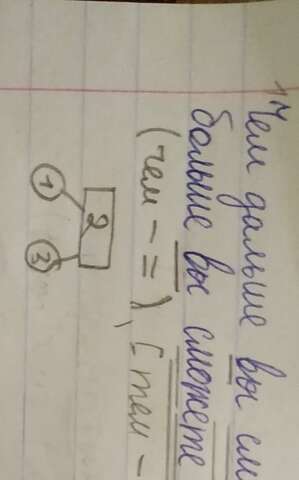 17 Чем дальше вы см
больше вы сможете
(чем – =), [тем –
2
1 3